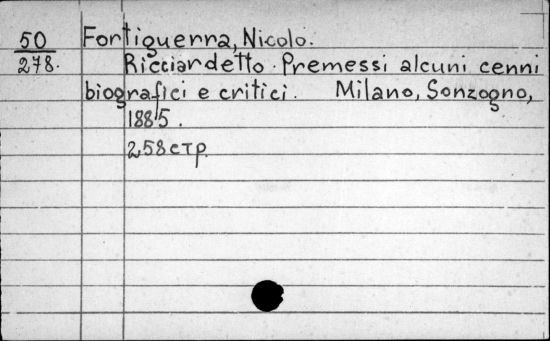 50 Fortiguerra, Nicolo.
278. Ricciardetto. Premessi alcuni cenni
biografici e critici. Milano, Sonzogno,
1885.
258 стр.